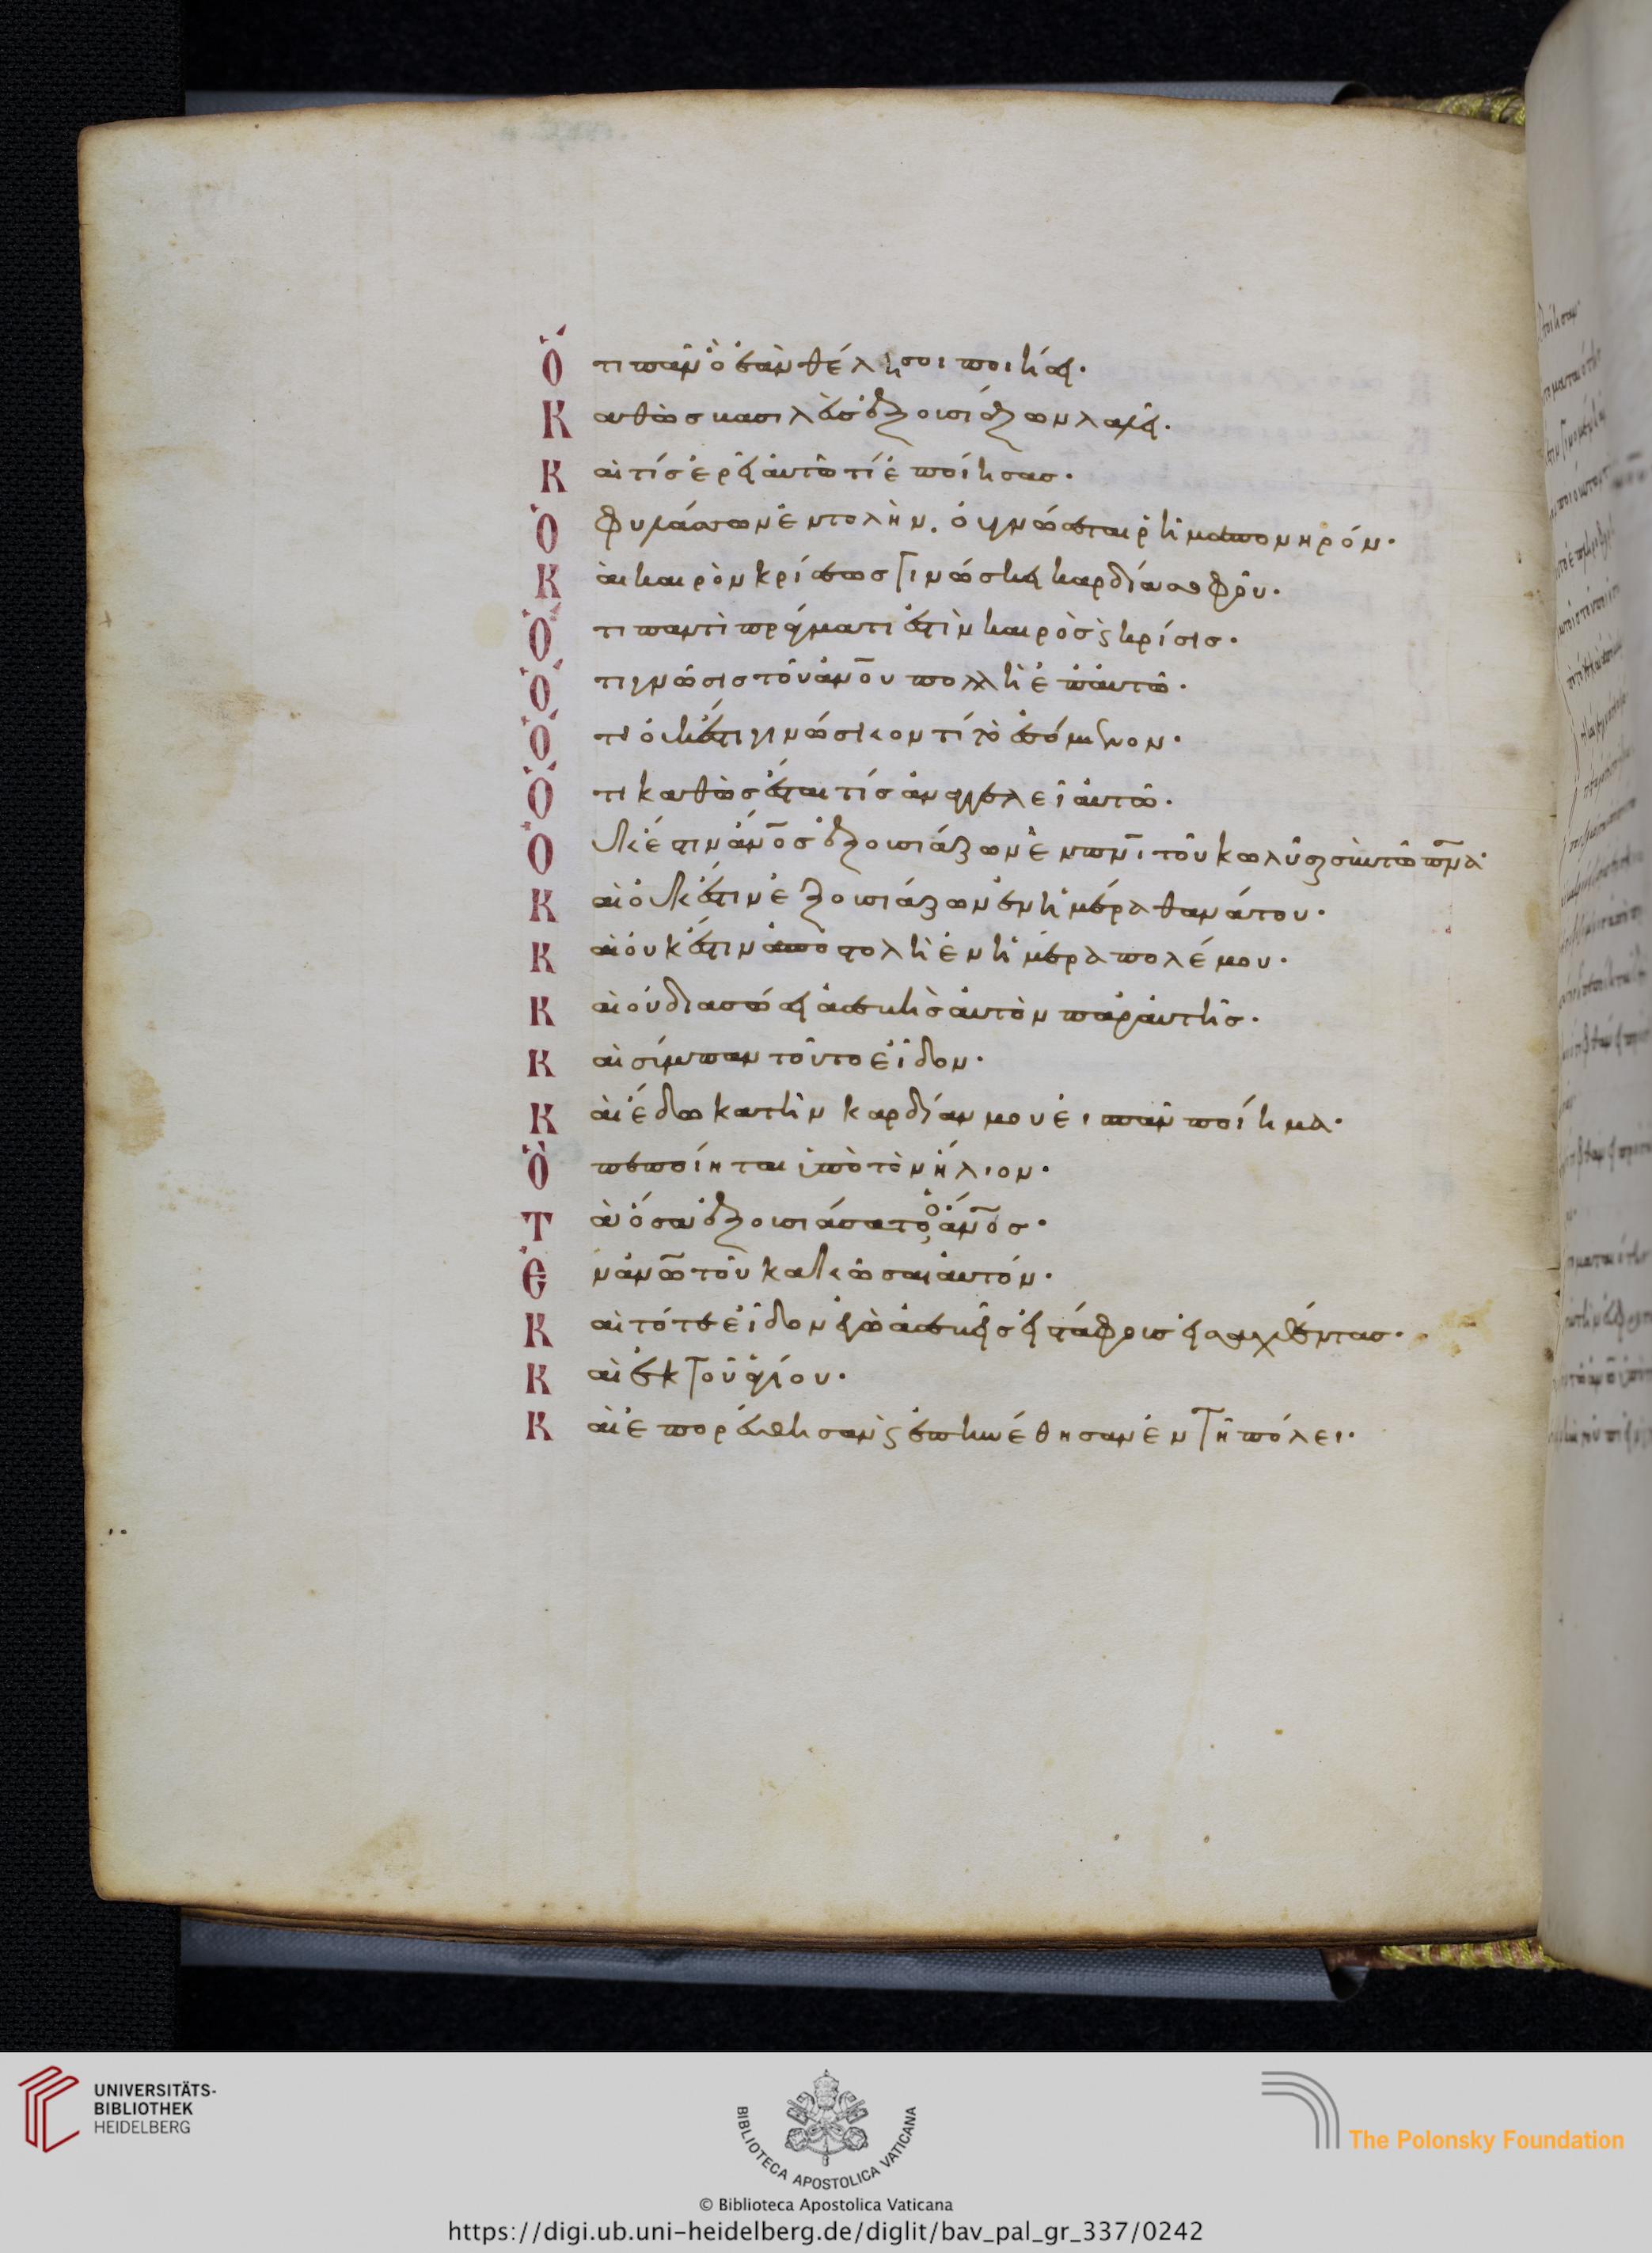 Ὅτι πᾶν ὃ ἐὰν θέλησοι ποιήσει·
Καθὼς βασιλεὺς ἐξουσιάζων λαλεῖ·
Καὶ τίς ἐρεῖ αὐτῶ τί ἐποίησας·
Ὁ φυλάσσων ἐντολὴν, οὐ γνώσεται ῥῆμα πονηρόν·
Καὶ καιρὸν κρίσεως γινώσκει καρδία σοφοῦ·
Ὅτι παντὶ πράγματι ἔστὶν καιρὸς ϗ κρίσις·
Ὅτι γνῶσις τοῦ ἀν̅ου πολλὴ ἐπ' αὐτῶ·
Ὅτι οὐκ ἔστι γινώσκον τί τὸ ἐσόμενον·
Ὅτι καθὼς ἔσται τίς ἀναγγελεῖ αὐτῶ·
Οὐκ ἔστιν ἀν̅ος ἐξουσιάζων ἐν πν̅ι τοῦ κωλῦσαι σὺν τῶ πν̅α·
Καὶ οὐκ ἔστιν ἐξουσιάζων ἐν ἡμέρα θανάτου·
Καὶ οὐκ ἔστιν ἀποστολὴ ἐν ἡμέρα πολέμου·
Καὶ οὐ διασώσει ἀσεβὴς αὐτὸν παρ' αὐτῆς·
Καὶ σύμπαν τοῦτο εἶδον·
Καὶ ἔδωκα τὴν καρδίαν μου εἰ πᾶν ποίημα·
Ὃ πεποίηται ὑπὸ τὸν ἥλιον·
Τὰ ὅσα ἐξουσιάσατο ὁ ἄν̅ος·
Ἐν ἀν̅ω τοῦ κακῶσαι αὐτόν·
Καὶ τότε εἶδον ἐγὼ ἀσεβεῖς εἰς τάφους εἰσαχθέντας·
Καὶ ἐκ τοῦ ἁγίου·
Καὶ ἐπορεύθησαν ϗ ἐπηνέθησαν ἐν τῆ πόλει·
UNIVERSITÄTS-
BIBLIOTHEK
HEIDELBERG
BIBLIOTECA APOSTOLICA VATICANA
The Polonsky Foundation
© Biblioteca Apostolica Vaticana
https://digi.ub.uni-heidelberg.de/diglit/bav_pal_gr_337/0242